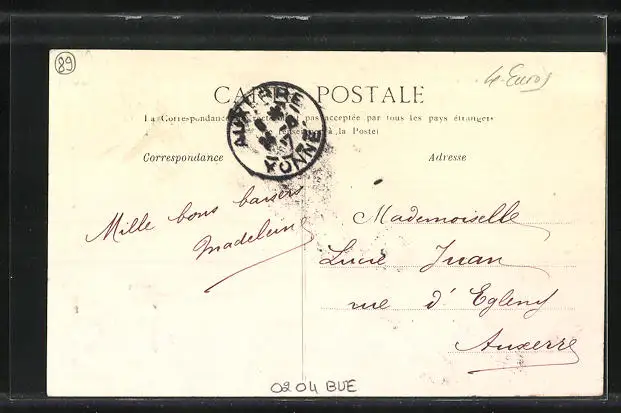 89
4 Euros
CARTE POSTALE
La Correspondance au recto n'est pas acceptée par tous les pays étrangers
(Se renseigner à la Poste)
AUXERRE
YONNE
Correspondance
Adresse
Mille bons baisers
Madeleine
Mademoiselle
Lucie Juan
rue d'Egleny
Auxerre
0204 BUE